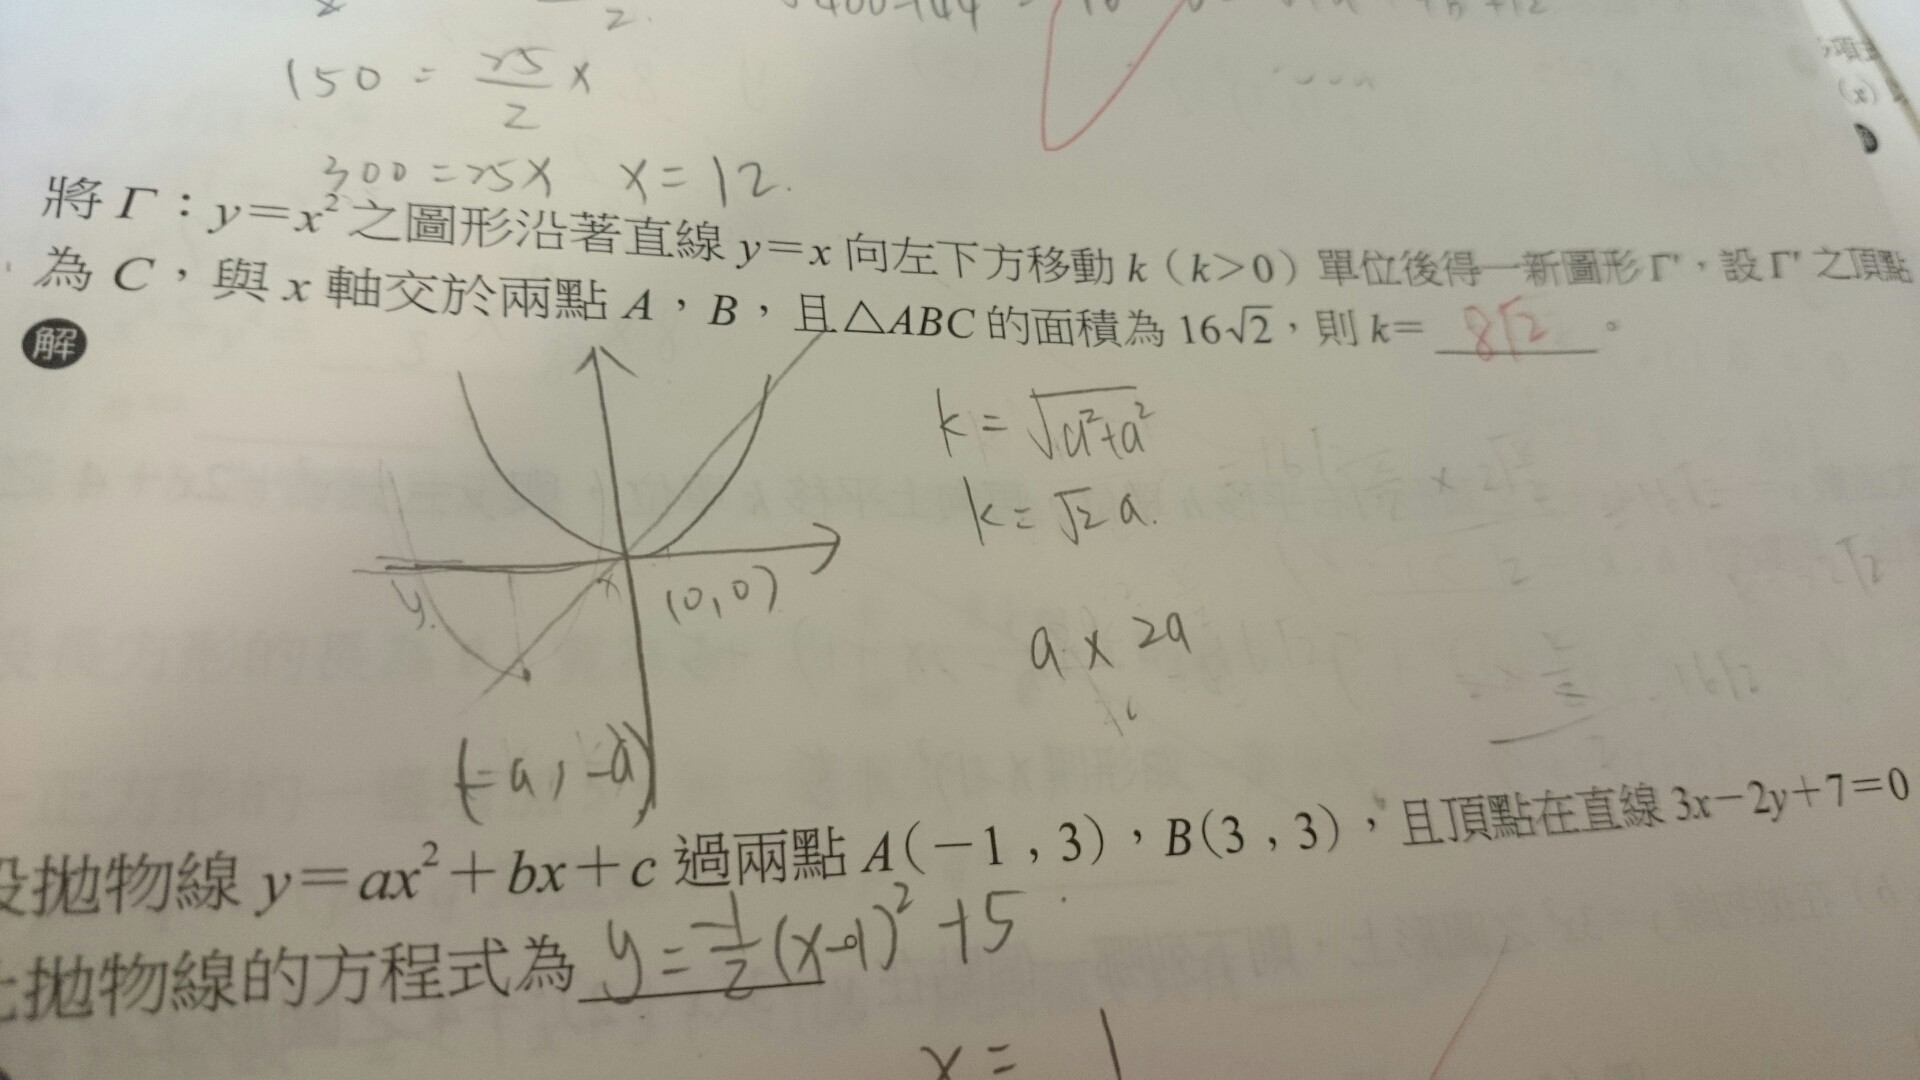 2.
150 = 25/2 x
300 = 25x x = 12.
將 Γ：y＝x² 之圖形沿著直線 y＝x 向左下方移動 k（k＞0）單位後得一新圖形 Γ'，設 Γ' 之頂點
為 C，與 x 軸交於兩點 A，B，且△ABC 的面積為 16√2，則 k＝ 8√2 。
解
k = √a²+a²
k = √2 a.
y. x (0,0)
a x 2a
(-a, -a)
拋物線 y＝ax²＋bx＋c 過兩點 A(－1 , 3)，B(3 , 3)，且頂點在直線 3x－2y＋7＝0
拋物線的方程式為 y = -1/2 (x-1)² +5
x = 1